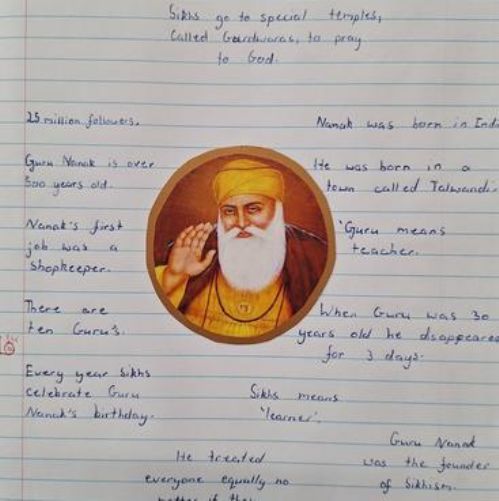 Sikhs go to special temples,
Called Gurdwaras, to pray
to God.
25 million followers.
Nanak was born in Indi
Guru Nanak is over
500 years old.
He was born in a
town called Talwandi.
Nanak's first
job was a
Shopkeeper.
'Guru means
teacher.
There are
ten Guru's.
When Guru was 30
years old he disappeared
for 3 days.
Every year Sikhs
celebrate Guru
Nanak's birthday.
Sikhs means
'learner'.
Guru Nanak
was the founder
of Sikhism.
He treated
everyone equally no
matter if they